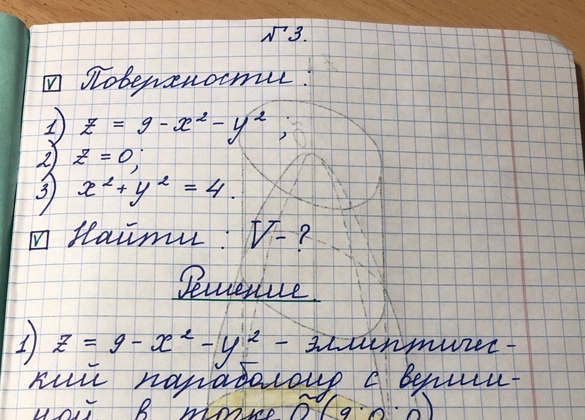 №3.
Поверхности:
1) z = 9 - x² - y²;
2) z = 0;
3) x² + y² = 4.
Найти: V - ?
Решение.
1) z = 9 - x² - y² - эллиптичес-
кий параболоид с верши-
ной в точке O (9; 0; 0)